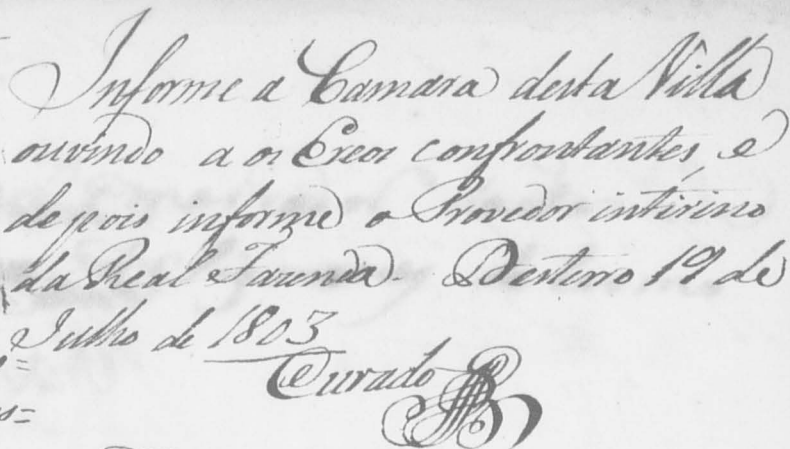 Informe a Camara desta Villa
ouvindo a os Ereos confrontantes, e
depois informe o Provedor intirino
da Real Fazenda. Desterro 19 de
Julho de 1803
Curado